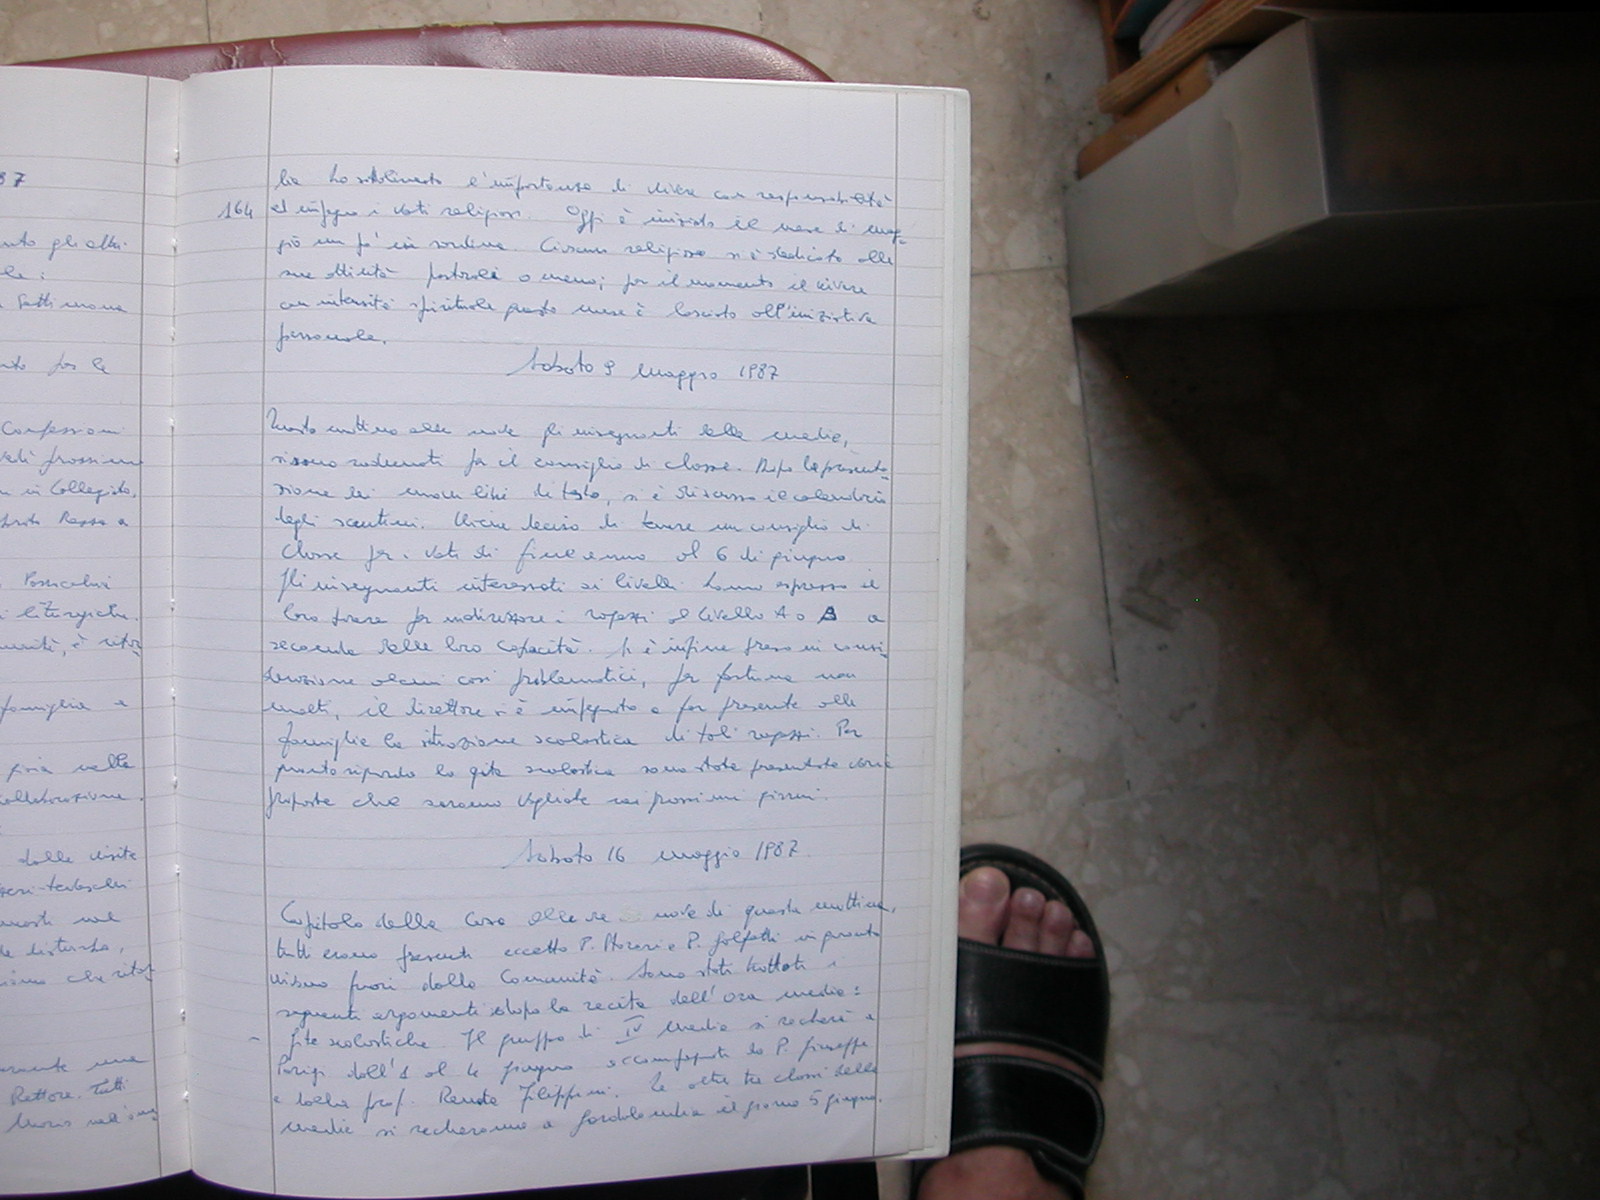 87
nto gli altri
le:
Settimana
nto per le
Confessioni
prossimo
in Collegio.
Rossa a
Postcalvi
liturgiche.
unità, è
famiglia e
più nella
collaborazione.
dalle visite
-tedeschi
le disturba,
siamo che
una
Rettore. Tutti
lia ha sottolineato l'importanza di vivere con responsabilità
164 ed impegno i voti religiosi. Oggi è iniziato il mese di mag-
gio un po' in sordina. Ciascun religioso si è dedicato alle
sue attività pastorali o meno; per il momento il vivere
con intensità spirituale questo mese è lasciato all'iniziativa
personale.
Sabato 9 maggio 1987
Questa mattina alle nove gli insegnanti della media,
si sono radunati per il consiglio di classe. Dopo la presenta-
zione dei nuovi libri di testo, si è discusso il calendario
degli scrutini. Viene deciso di tenere un consiglio di
classe per i voti di fine anno al 6 di giugno.
Gli insegnanti interessati ai livelli hanno espresso il
loro parere per indirizzare i ragazzi al livello A o B a
seconda delle loro capacità. Si è infine preso in consi-
derazione alcuni casi problematici, per fortuna non
molti, il direttore si è impegnato a far presente alle
famiglie la situazione scolastica di tali ragazzi. Per
quanto riguarda la gita scolastica sono state presentate varie
proposte che saranno vagliate nei prossimi giorni.
Sabato 16 maggio 1987
Capitolo della Casa alle ore nove di questa mattina,
tutti erano presenti eccetto P. e P. in quanto
vivono fuori dalla Comunità. Sono stati trattati i
seguenti argomenti dopo la recita dell'Ora media:
- Gite scolastiche. Il gruppo di IV media si recherà a
Parigi dall'1 al 4 giugno accompagnati da P. Giuseppe
e dalla prof. Renata Filippini. Le altre tre classi della
media si recheranno a Gardaland il giorno 5 giugno.